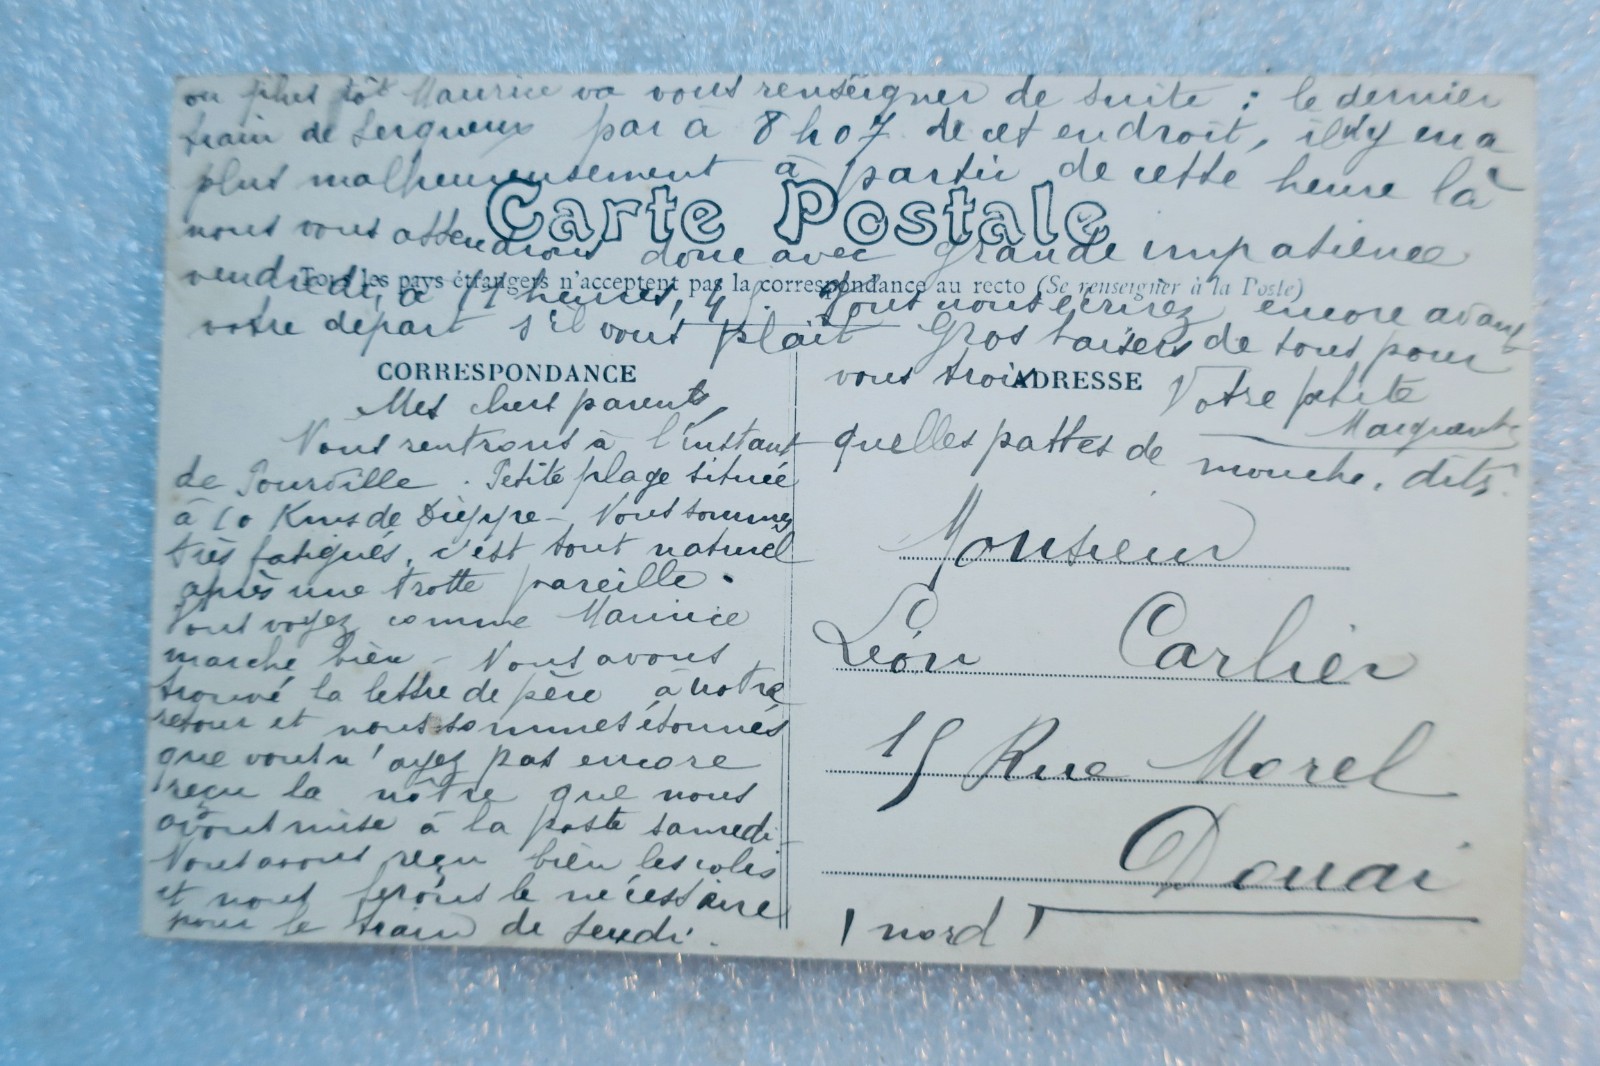 ou plus tôt Maurice va vous renseigner de suite : le dernier
train de Serqueux par à 8 h 07 de cet endroit, il n'y en a
plus malheureusement à partir de cette heure là
Carte Postale
nous vous attendrons donc avec grande impatience
Tous les pays étrangers n'acceptent pas la correspondance au recto (Se renseigner à la Poste)
vendredi, à 11 heures, 45. Vous nous écrirez encore avant
votre départ s'il vous plaît Gros baisers de tous pour
vous trois Votre petite
Marguerite
quelles pattes de mouche, dites.
CORRESPONDANCE
Mes chers parents,
Nous rentrons à l'instant
de Pourville. Petite plage située
à 10 Kms de Dieppe - Nous sommes
très fatigués, c'est tout naturel
après une trotte pareille.
Vous voyez comme Maurice
marche bien - Nous avons
trouvé la lettre de père à notre
retour et nous sommes étonnés
que vous n'ayez pas encore
reçu la nôtre que nous
avons mise à la poste samedi -
Nous avons reçu bien les colis
et nous ferons le nécessaire
pour le train de
ADRESSE
Monsieur
Léon Carlier
15 Rue Morel
Douai
(nord)